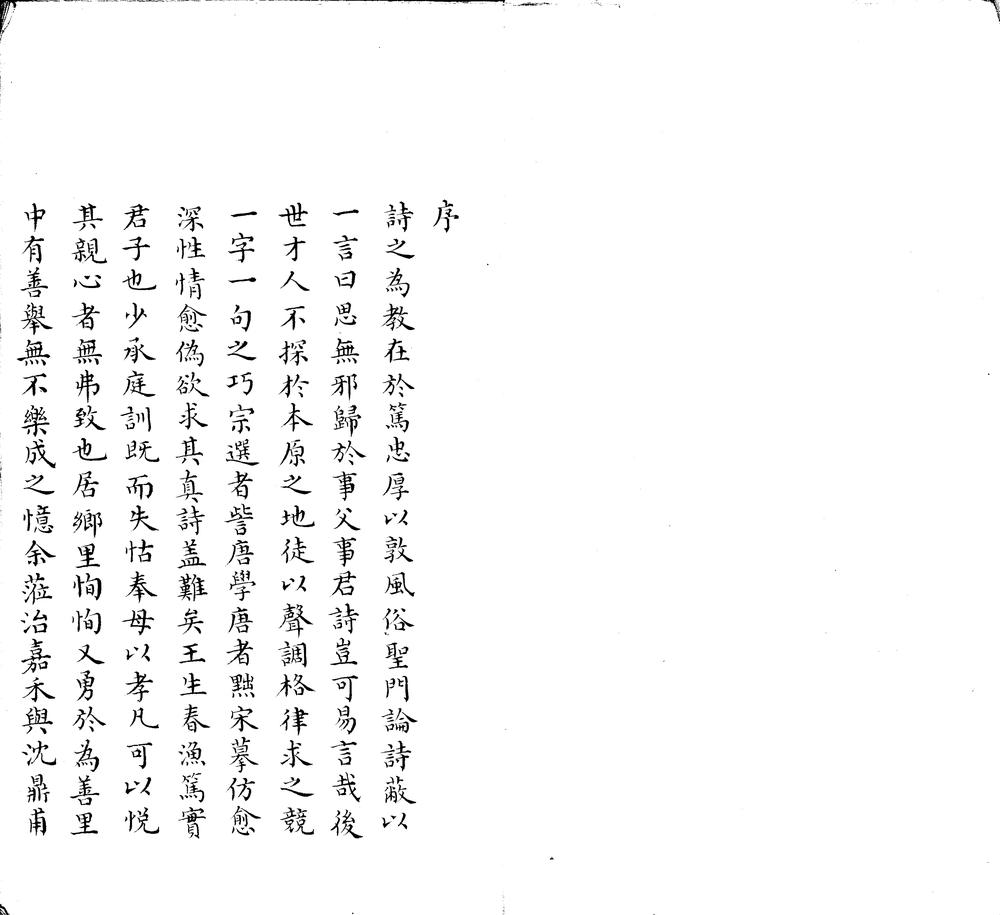 序
詩之為教在於篤忠厚以敦風俗聖門論詩蔽以
一言曰思無邪歸於事父事君詩豈可易言哉後
世才人不探於本原之地徒以聲調格律求之競
一字一句之巧宗選者訾唐學唐者黜宋摹仿愈
深性情愈偽欲求其真詩盖難矣王生春漁篤實
君子也少承庭訓既而失怙奉母以孝凡可以悅
其親心者無弗致也居鄉里恂恂又勇於為善里
中有善舉無不樂成之憶余蒞治嘉禾與沈鼎甫